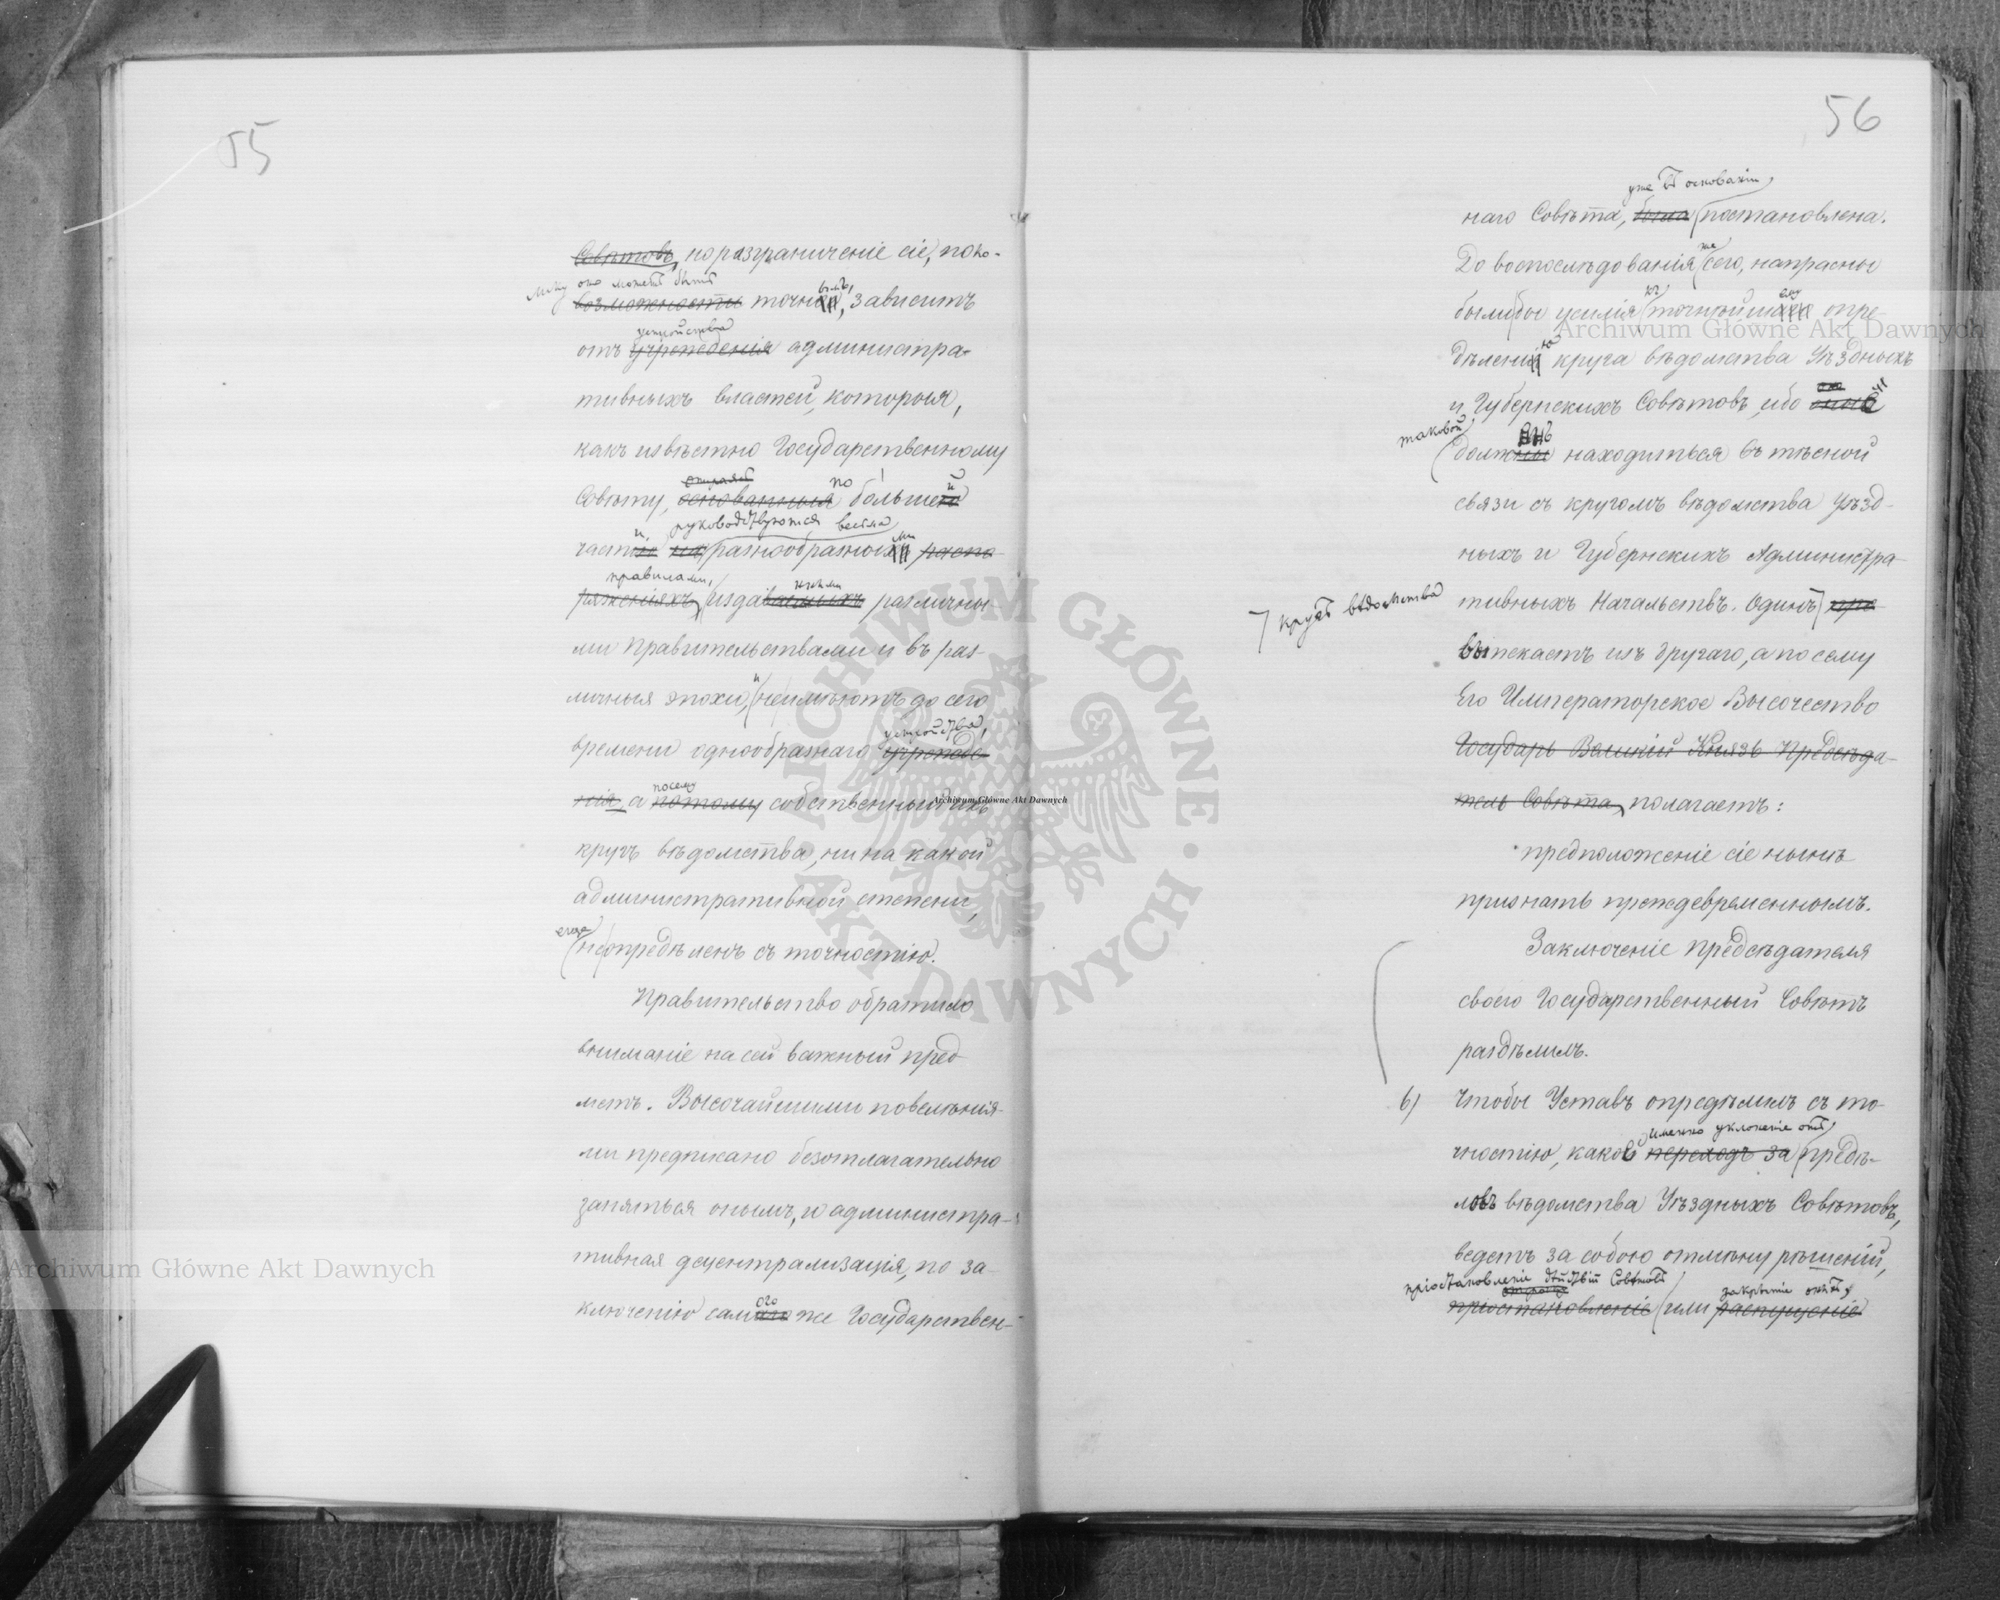 55
Совѣтовъ, но разграниченіе сіе, поко-
лику оно можетъ быть
возможности точнымъ, зависитъ
устройства
отъ учрежденія администра-
тивныхъ властей, которыя,
какъ извѣстно Государственному
опираясь по
Совѣту, основанныя большей
руководствуются весьма
части на разнообразными распо-
правилами, ными
ряженіяхъ, издаваемыхъ различны-
ми Правительствами и въ раз-
личныя эпохи, и не имѣютъ до сего
устройства,
времени однообразнаго учрежде-
посему
нія, а потому собственный ихъ
кругъ вѣдомства, ни на какой
административной степени,
еще
не опредѣленъ съ точностію.
Правительство обратило
вниманіе на сей важный пред-
метъ. Высочайшими повелѣнія-
ми предписано безотлагательно
заняться онымъ, и администра-
тивная децентрализація, по за-
ключенію самого же Государствен-
56
уже въ основаніи
наго Совѣта, была постановлена.
же
До воспослѣдованія сего, напрасны
къ ему
были бы усилія точнѣйшему опре-
дѣленію круга вѣдомства Уѣздныхъ
и Губернскихъ Совѣтовъ, ибо
таковой
долженъ находиться въ тѣсной
связи съ кругомъ вѣдомства Уѣзд-
ныхъ и Губернскихъ Администра-
кругъ вѣдомства
тивныхъ Начальствъ. Одинъ про-
вытекаетъ изъ другаго, а по сему
Его Императорское Высочество
Государь Великій Князь Предсѣда-
тель Совѣта, полагаетъ:
предположеніе сіе нынѣ
признать преждевременнымъ.
Заключеніе Предсѣдателя
своего Государственный Совѣтъ
раздѣлилъ.
б) Чтобы Уставъ опредѣлилъ съ то-
именно уклоненіе отъ
чностію, какое переходъ за предѣ-
ловъ вѣдомства Уѣздныхъ Совѣтовъ,
ведетъ за собою отмѣну рѣшеній,
пріостановленіе дѣйствій Совѣтовъ закрытіе онаго
пріостановленіе или распущеніе
Archiwum Główne Akt Dawnych
Archiwum Główne Akt Dawnych
Archiwum Główne Akt Dawnych
ARCHIWUM GŁÓWNE · AKT DAWNYCH ·